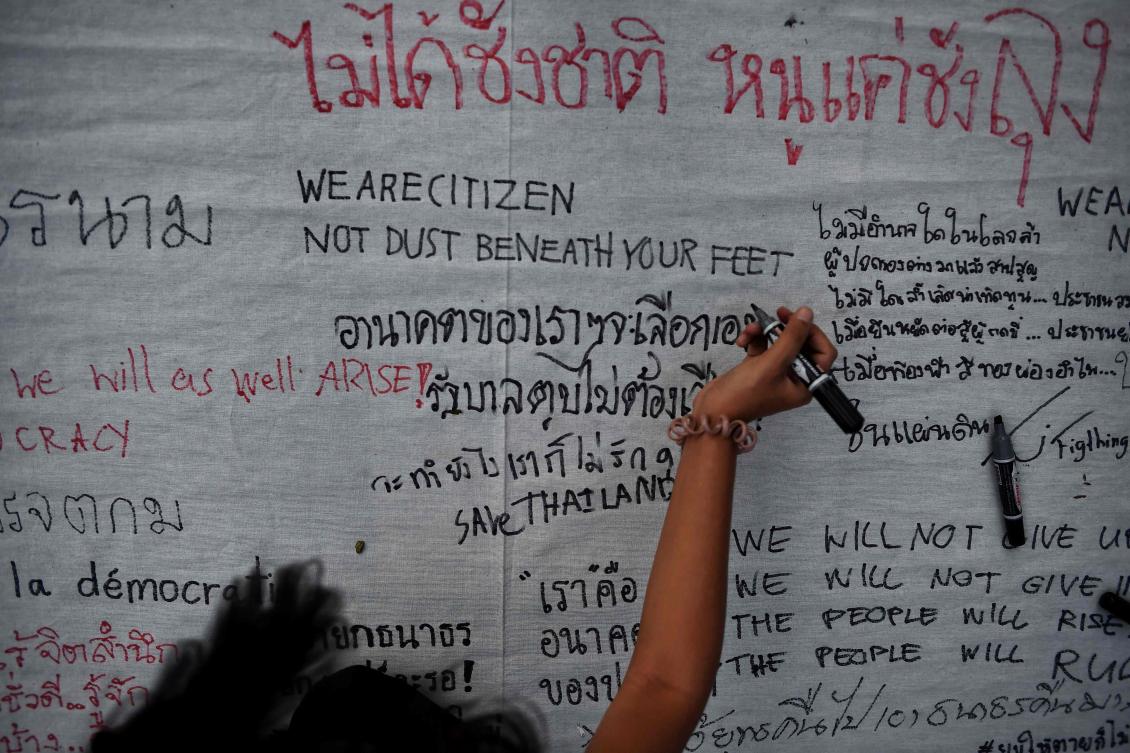 ไม่ได้ชังชาติ หนูแค่ชังลุง
รนาม
WE ARE CITIZEN
NOT DUST BENEATH YOUR FEET
WEA
N
ไม่มีอำนาจใดในโลกล้ำ
ผู้ปกครองต่างมาแล้วสาปสูญ
ไม่มีใครล้ำเลิศน่าเทิดทูน... ประชาชน
เมื่อยืนหยัดต่อสู้ผู้กดขี่... ประชาชน
เมื่อท้องฟ้าสีทองผ่องอำไพ...
อานาคตของเราๆจะเลือกเอง
we will as well ARISE!
รัฐบาลตูบไม่ต้อง
CRACY
ขึ้นแผ่นดิน
Figthing
กะทำยังไงเราก็ไม่รัก
SAVE THAILAND
รจตกม
WE WILL NOT GIVE U
la démocrati
"เรา"คือ
WE WILL NOT GIVE U
THE PEOPLE WILL RISE
จิตสำนึก
ายกธนาธร
อนาค
THE PEOPLE WILL RUL
ชั่วดี..รู้จัก
ะรอ!
ของป
คืนไป เอาธนาธรคืนมา
บ้าง..